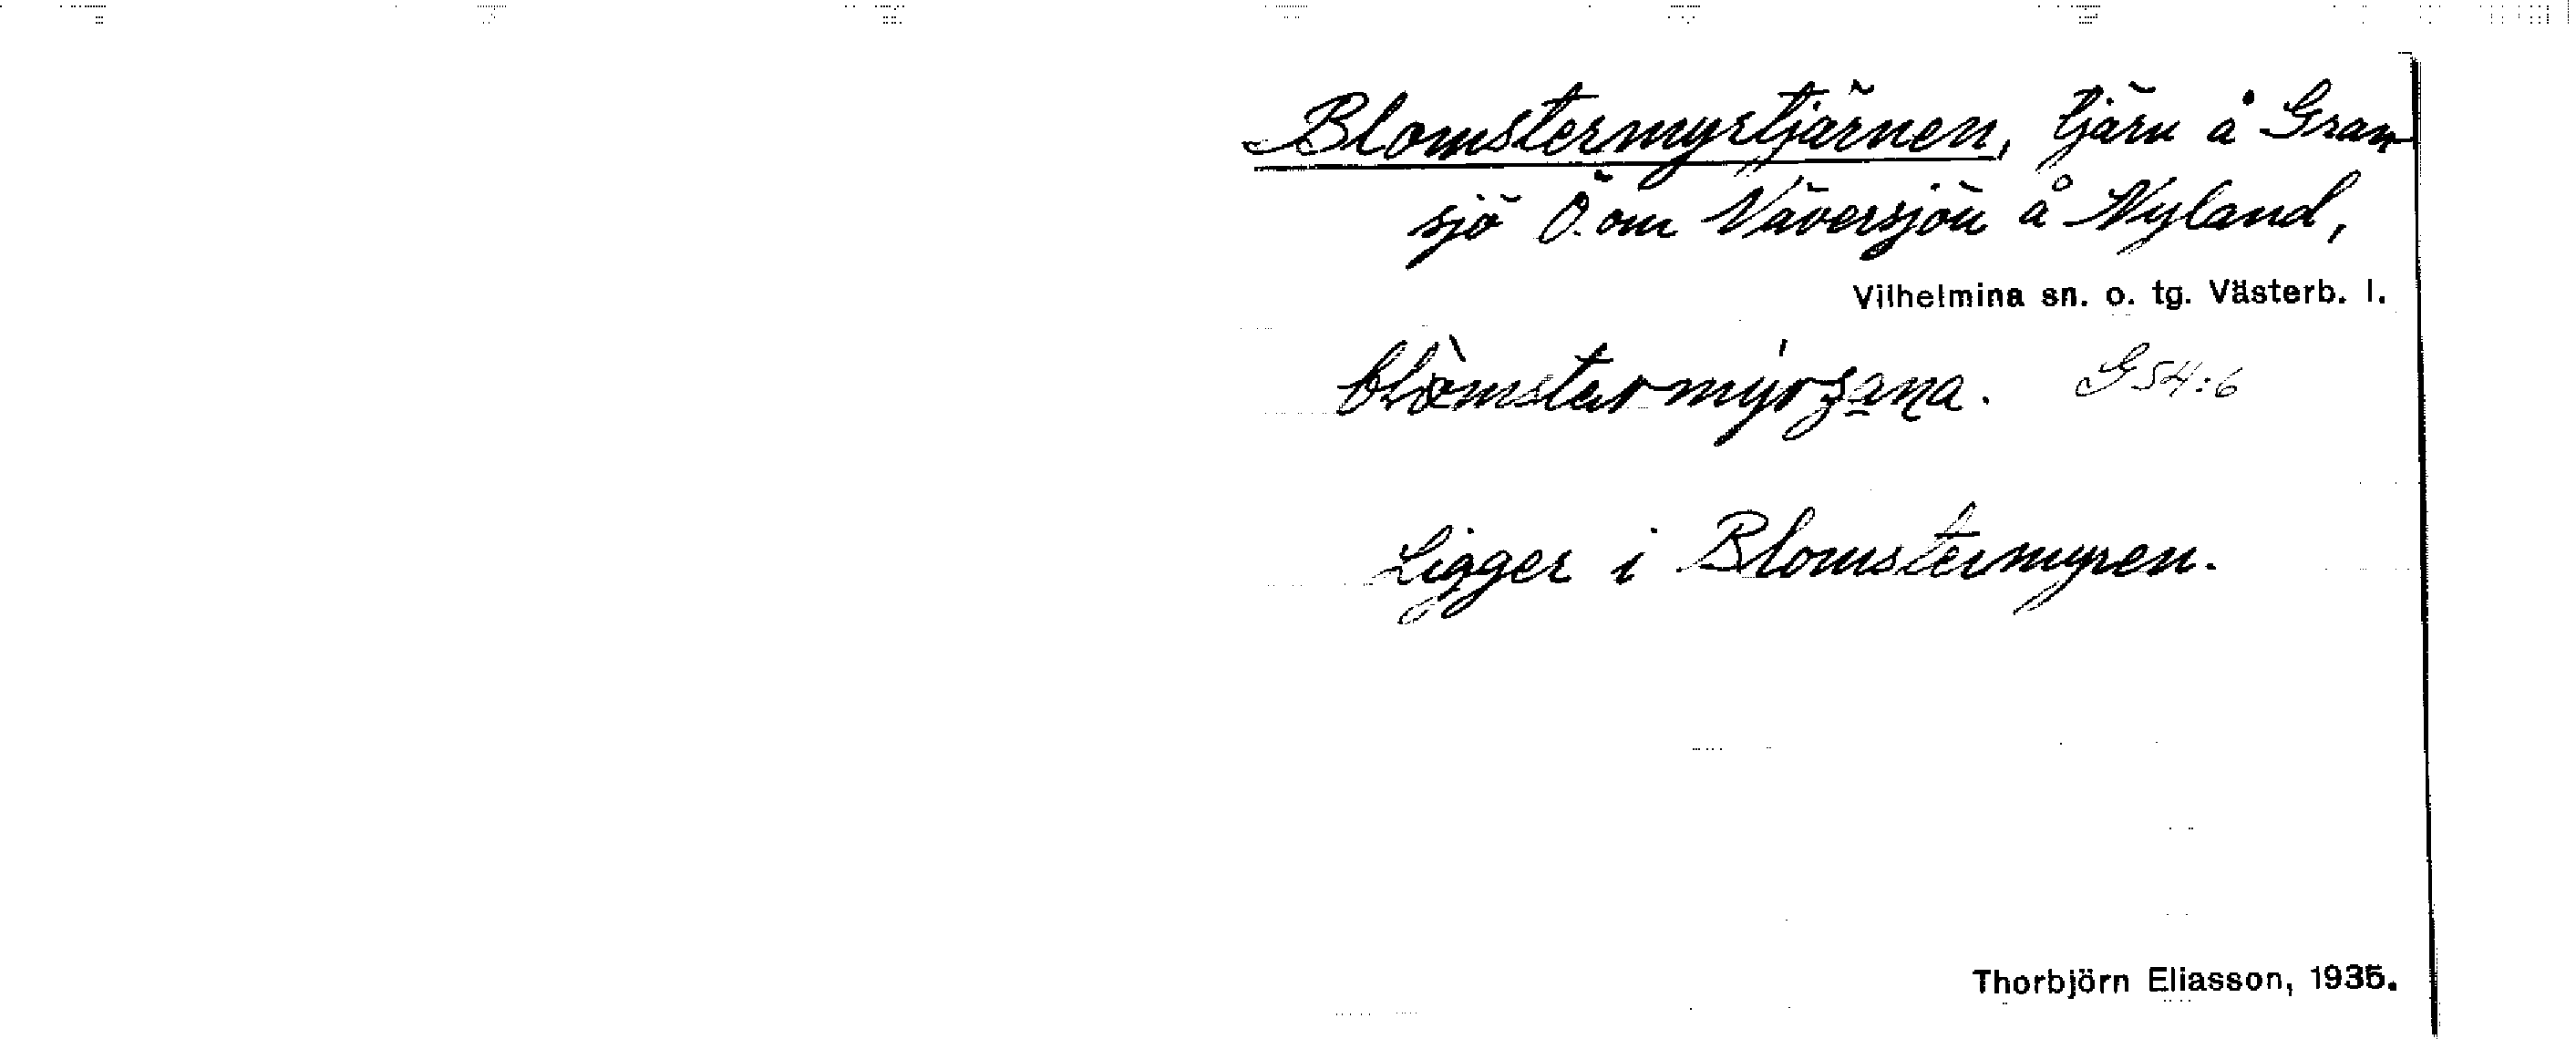 Blomstermyrtjärnen, tjärn å Gran-
sjö Ö. om Väversjön å Nyland,
Vilhelmina sn. o. tg. Västerb. l.
G 54:6
Ligger i Blomstermyren.
Thorbjörn Eliasson, 1935.